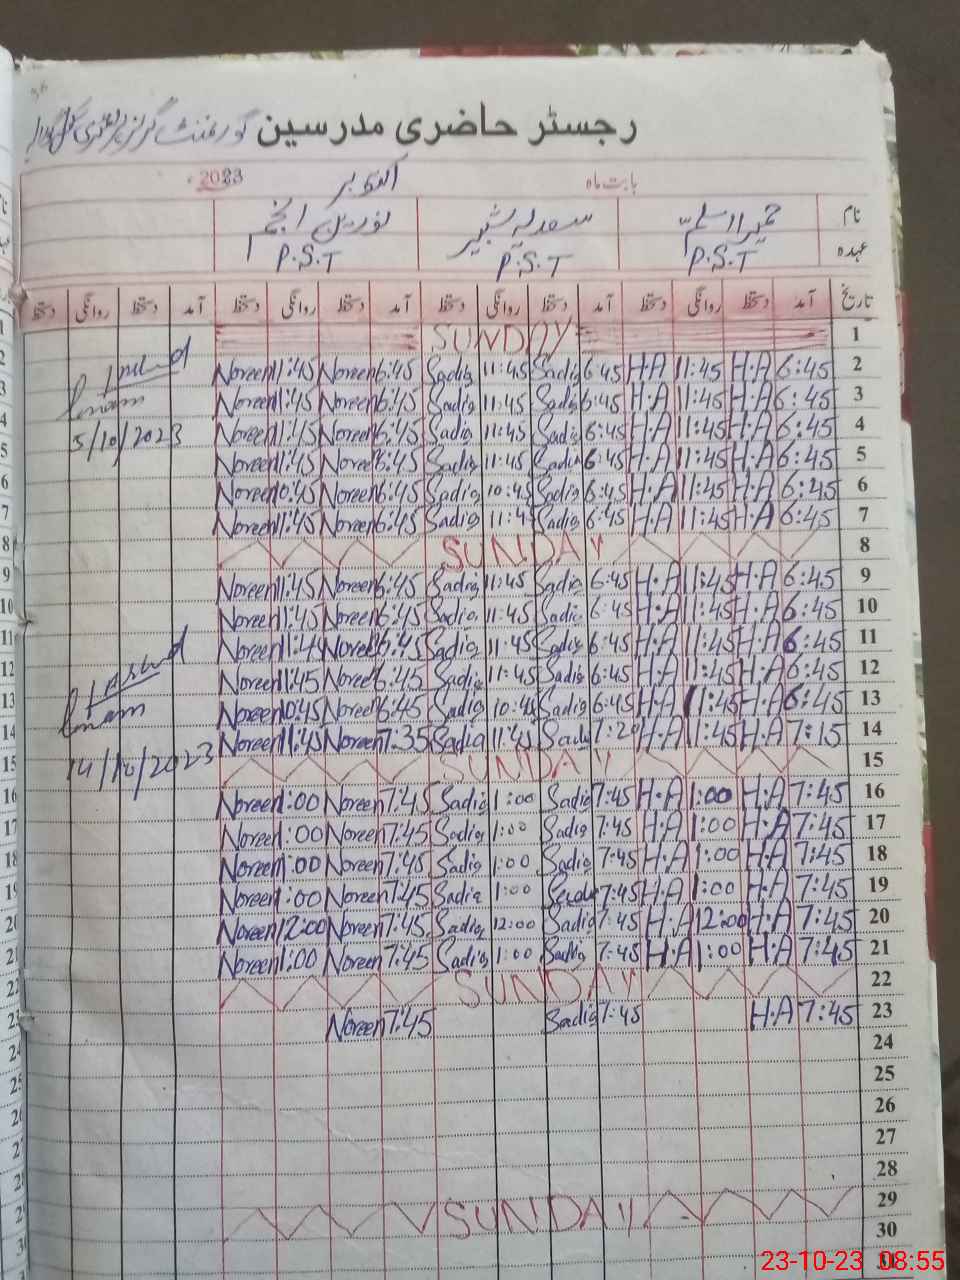 رجسٹر حاضری مدرسین گورنمنٹ گرلز پرائمری
بابت ماہ اکتوبر 2023ء
نام حمیرا اسلم سعدیہ بشیر نورین انجم
عہدہ P.S.T P.S.T P.S.T
تاریخ آمد دستخط روانگی دستخط آمد دستخط روانگی دستخط آمد دستخط روانگی دستخط آمد دستخط روانگی دستخط
SUNDAY 1
Noreen 11:45 Noreen 6:45 Sadia 11:45 Sadia 6:45 H.A 11:45 H.A 6:45 2
Noreen 11:45 Noreen 6:45 Sadia 11:45 Sadia 6:45 H.A 11:45 H.A 6:45 3
5/10/2023 Noreen 11:45 Noreen 6:45 Sadia 11:45 Sadia 6:45 H.A 11:45 H.A 6:45 4
Noreen 11:45 Noreen 6:45 Sadia 11:45 Sadia 6:45 H.A 11:45 H.A 6:45 5
Noreen 10:45 Noreen 6:45 Sadia 10:45 Sadia 6:45 H.A 11:45 H.A 6:45 6
Noreen 11:45 Noreen 6:45 Sadia 11:45 Sadia 6:45 H.A 11:45 H.A 6:45 7
SUNDAY 8
Noreen 11:45 Noreen 6:45 Sadia 11:45 Sadia 6:45 H.A 11:45 H.A 6:45 9
Noreen 11:45 Noreen 6:45 Sadia 11:45 Sadia 6:45 H.A 11:45 H.A 6:45 10
Noreen 11:45 Noreen 6:45 Sadia 11:45 Sadia 6:45 H.A 11:45 H.A 6:45 11
Noreen 11:45 Noreen 6:45 Sadia 11:45 Sadia 6:45 H.A 11:45 H.A 6:45 12
Noreen 10:45 Noreen 6:45 Sadia 10:45 Sadia 6:45 H.A 11:45 H.A 6:45 13
Noreen 11:45 Noreen 7:35 Sadia 11:45 Sadia 7:20 H.A 11:45 H.A 7:15 14
14/10/2023 SUNDAY 15
Noreen 1:00 Noreen 7:45 Sadia 1:00 Sadia 7:45 H.A 1:00 H.A 7:45 16
Noreen 1:00 Noreen 7:45 Sadia 1:00 Sadia 7:45 H.A 1:00 H.A 7:45 17
Noreen 1:00 Noreen 7:45 Sadia 1:00 Sadia 7:45 H.A 1:00 H.A 7:45 18
Noreen 1:00 Noreen 7:45 Sadia 1:00 Sadia 7:45 H.A 1:00 H.A 7:45 19
Noreen 12:00 Noreen 7:45 Sadia 12:00 Sadia 7:45 H.A 12:00 H.A 7:45 20
Noreen 1:00 Noreen 7:45 Sadia 1:00 Sadia 7:45 H.A 1:00 H.A 7:45 21
SUNDAY 22
Noreen 7:45 Sadia 7:45 H.A 7:45 23
24
25
26
27
28
SUNDAY 29
30
31
23-10-23 08:55